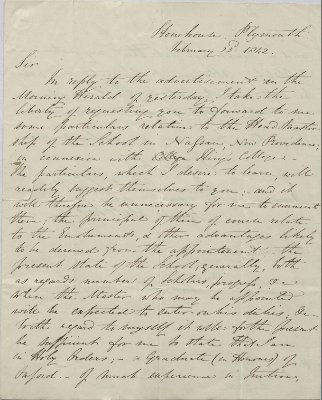 Stonehouse, Plymouth
February 23d 1842.
Sir
In reply to the advertisement in the
Morning Herald of yesterday, I take the
liberty of requesting you to forward to me
some particulars relative to the Head Master
ship of the School in Nassau, New Providence,
in connexion with King's College:
The particulars, which I desire to learn, will
readily suggest themselves to you, and it
will therefore be unnecessary for me to enumerate
them; the principal of them of course relate
to the Emoluments, & other advantages likely
to be derived from the appointment - the
present state of the School, generally, both
as regards number of Scholars, &c
when the Master who may be appointed
will be expected to enter on his duties, &c.
With regard to myself it will for the present
be sufficient for me to state that I am
in Holy Orders; - a Graduate (in Honours) of
Oxford - of much experience in Tuition,